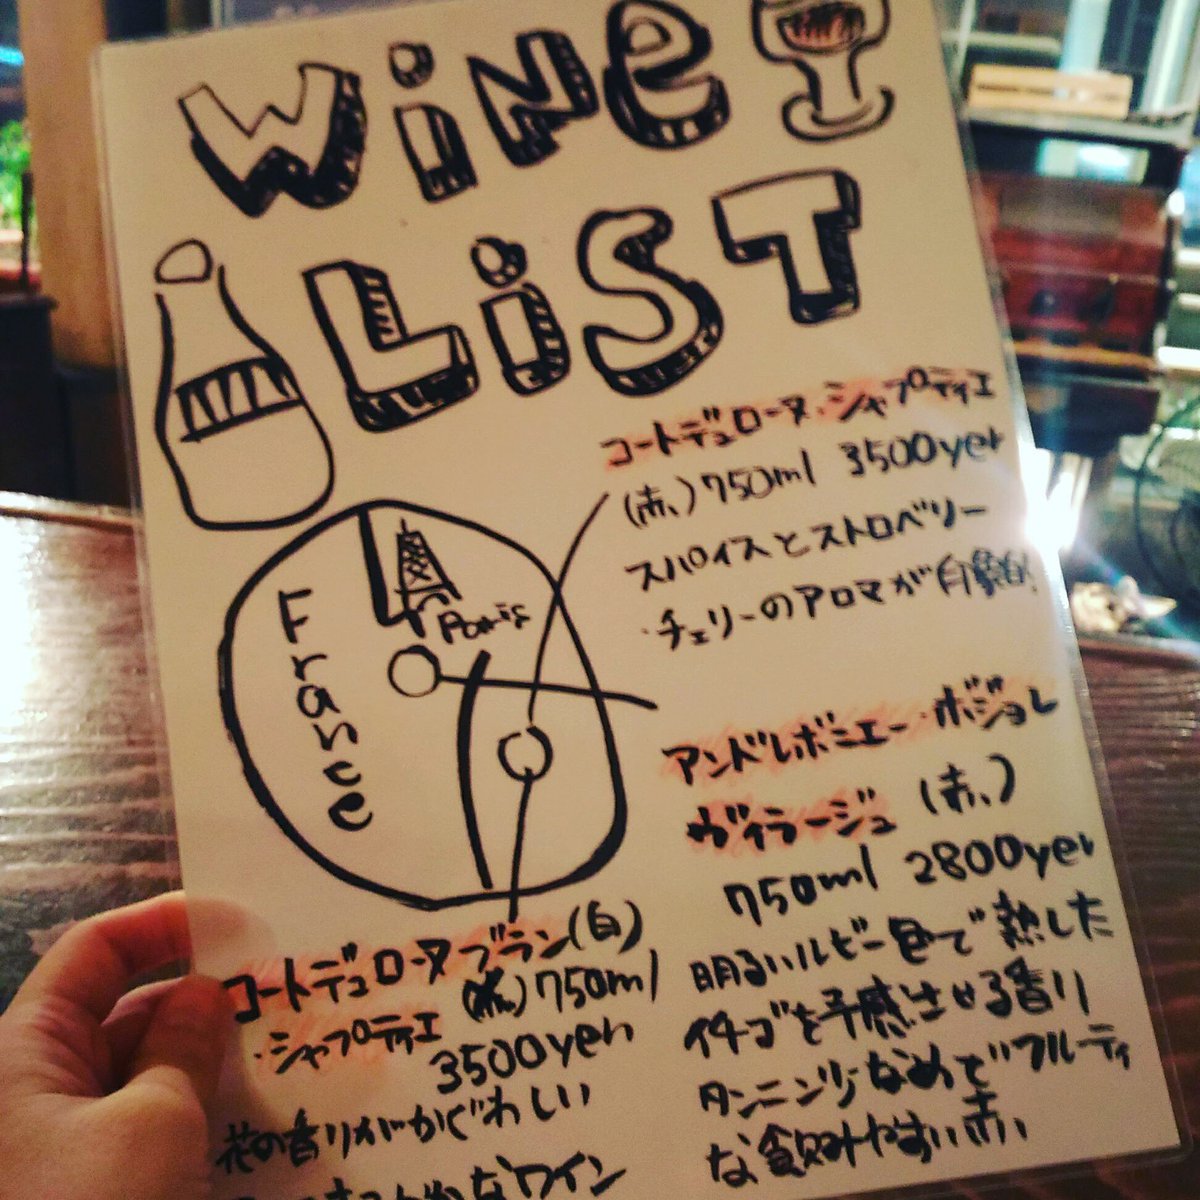 WiNe
LiST
コートデュローヌ・シャプティエ
(赤)750ml 3500yen
スパイスとストロベリー
・チェリーのアロマが印象的!
France
Paris
アンドレボニエー・ボジョレ
ヴィラージュ (赤)
750ml 2800yen
明るいルビー色で熟した
イチゴを予感させる香り
タンニン少なめで"フルーティ
な飲みやすい赤い
コートデュローヌブラン(白)
・シャプティエ 750ml
3500yen
花の香りがかぐわしい
なワイン